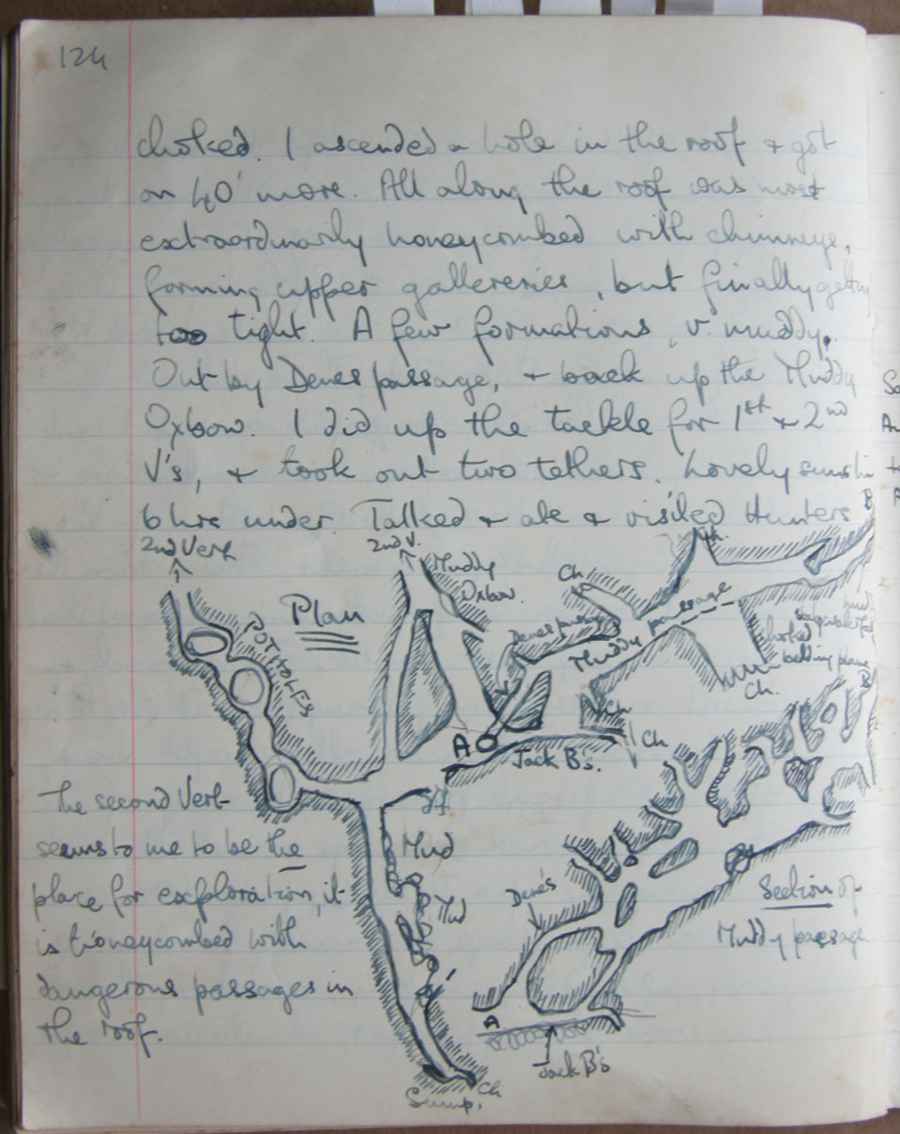 124
choked. I ascended a hole in the roof & got
on 40' more. All along the roof was most
extraordinarily honeycombed with chimneys,
forming upper galleries, but finally getting
too tight. A few formations, v. muddy.
Out by Denes passage, & back up the Muddy
Oxbow. I did up the tackle for 1st & 2nd
V's, & took out two tethers. Lovely
6 hrs under. Talked & ate & visited Hunters
2nd Vert
2nd V.
Muddy
Oxbow.
Plan
POTHOLES
Ch.
Ch.
B
Denes
Muddy passage
choked
bedding plane
Ch.
Ch
Ch
B
A
Jack B's.
The second Vert
seems to me to be the
place for exploration, it
is honeycombed with
dangerous passages in
the roof.
Mud
Dene's
Section of
Muddy passage
A
Jack B's
Ch
Sump.